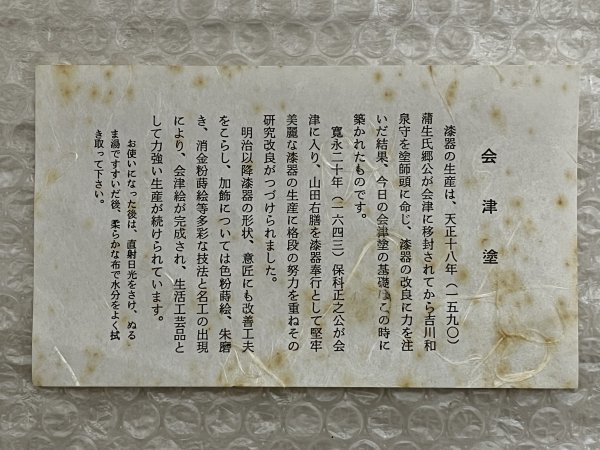 会津塗
漆器の生産は、天正十八年（一五九〇）
蒲生氏郷公が会津に移封されてから吉川和
泉守を塗師頭に命じ、漆器の改良に力を注
いだ結果、今日の会津塗の基礎はこの時に
築かれたものです。
寛永二十年（一六四三）保科正之公が会
津に入り、山田右膳を漆器奉行として堅牢
美麗な漆器の生産に格段の努力を重ねその
研究改良がつづけられました。
明治以降漆器の形状、意匠にも改善工夫
をこらし、加飾については色粉蒔絵、朱磨
き、消金粉蒔絵等多彩な技法と名工の出現
により、会津絵が完成され、生活工芸品と
して力強い生産が続けられています。
お使いになった後は、直射日光をさけ、ぬる
ま湯ですすいだ後、柔らかな布で水分をよく拭
き取って下さい。